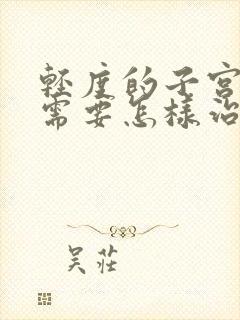 輕度的子宮
需要怎樣治
吴莊